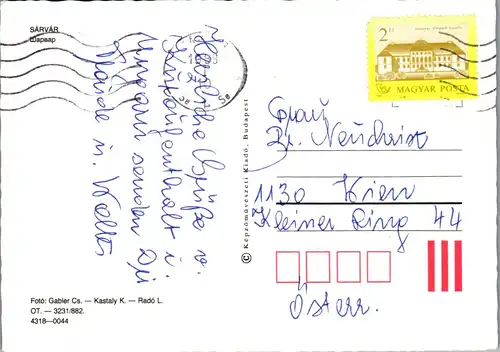 SÁRVÁR
Látkép
2 Ft
MAGYAR POSTA
Herzliche Grüße v.
Kuraufenthalt i.
Ungarn senden Dir
u. Walter
Frau
1130 Wien
Kleiner Ring 44
Österr.
© Képzőművészeti Kiadó, Budapest
Fotó: Gabler Cs. — Kastaly K. — Radó L.
OT. — 3231/882.
4318—0044